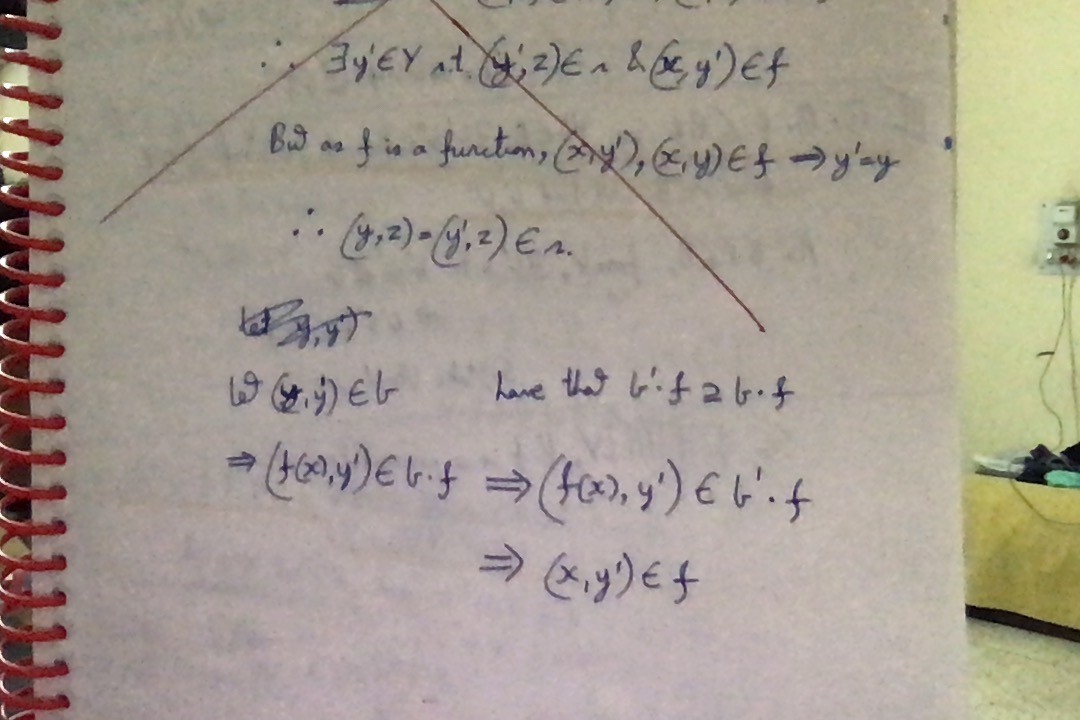 ∴ ∃y'∈Y s.t. (y',z)∈ r & (x,y')∈f
But as f is a function, (x,y'), (x,y)∈f ⇒ y'=y
∴ (y,z)=(y',z) ∈ r.
Let (y,y')∈b have that b'·f ⊇ b·f
⇒ (f(x),y')∈b·f ⇒ (f(x), y') ∈ b'·f
⇒ (x,y')∈f